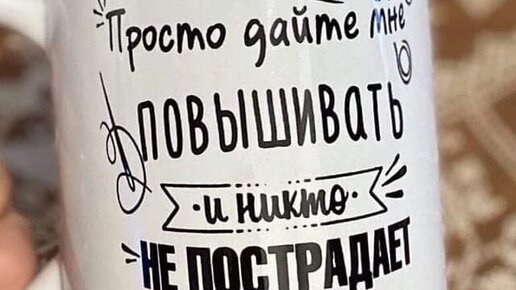 Просто дайте мне
ПОВЫШИВАТЬ
и никто
НЕ ПОСТРАДАЕТ